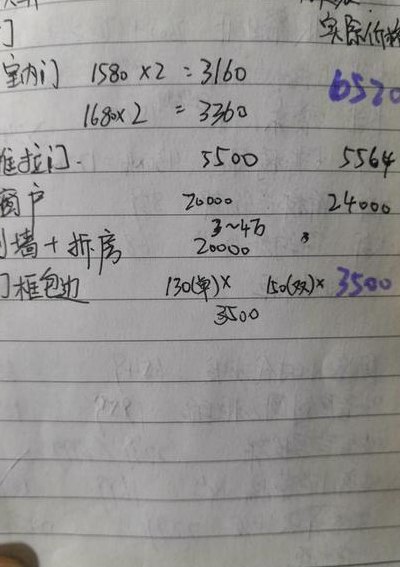 门 实际价格
室内门 1580×2 = 3160 6520
1680×2 = 3360
推拉门. 5500 5564
窗户 20000 24000
3~4万
墙+拆房 20000
门框包边 130(单)× 150(双)× 3500
3500